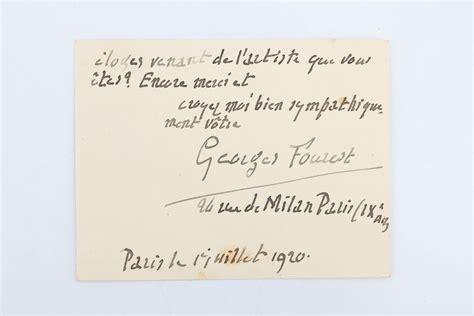 éloges venant de l'artiste que vous
êtes? Encore merci et
croyez moi bien sympathique-
ment vôtre
Georges Fourest
rue de Milan Paris (IXe
Paris le 1er juillet 1920.